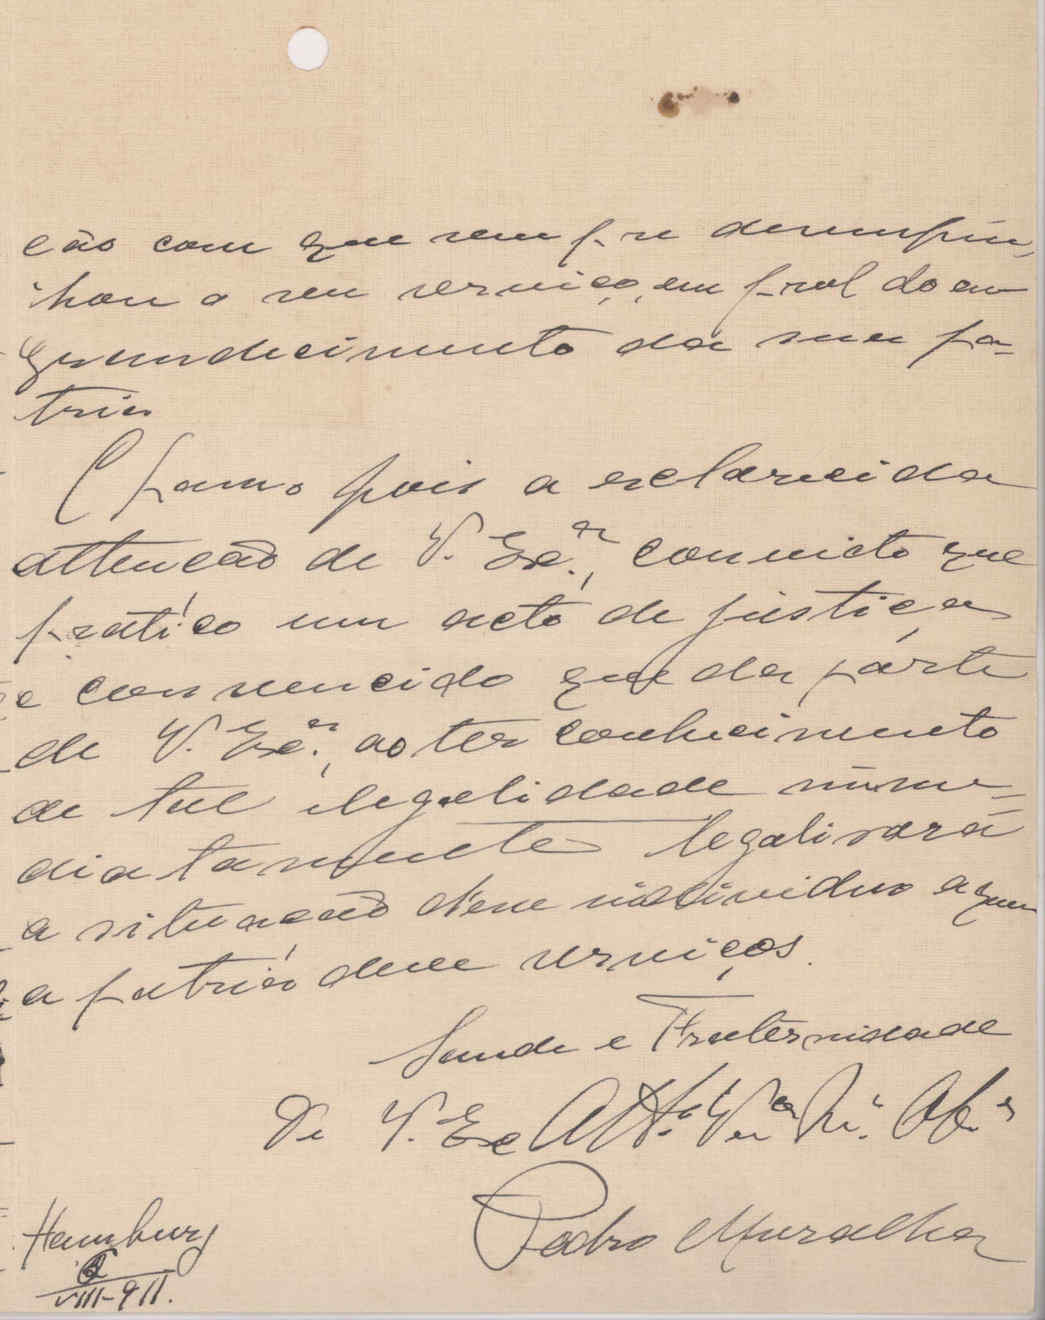 ção com que sempre desempen-
hou o seu serviço, em prol do en
grandecimento da sua pa-
tria
Chamo pois a esclarecida
attenção de V. Exª., convicto que
pratico um acto de justiça
e convencido que da parte
de V. Exª., ao ter conhecimento
de tal ilegalidade imme-
diatamente legalisará
a situação d'esse individuo a quem
a patria deve serviços.
Saude e Fraternidade
De V. Ex Attº Venor
Pedro Muralha
Hamburg
VIII-911.